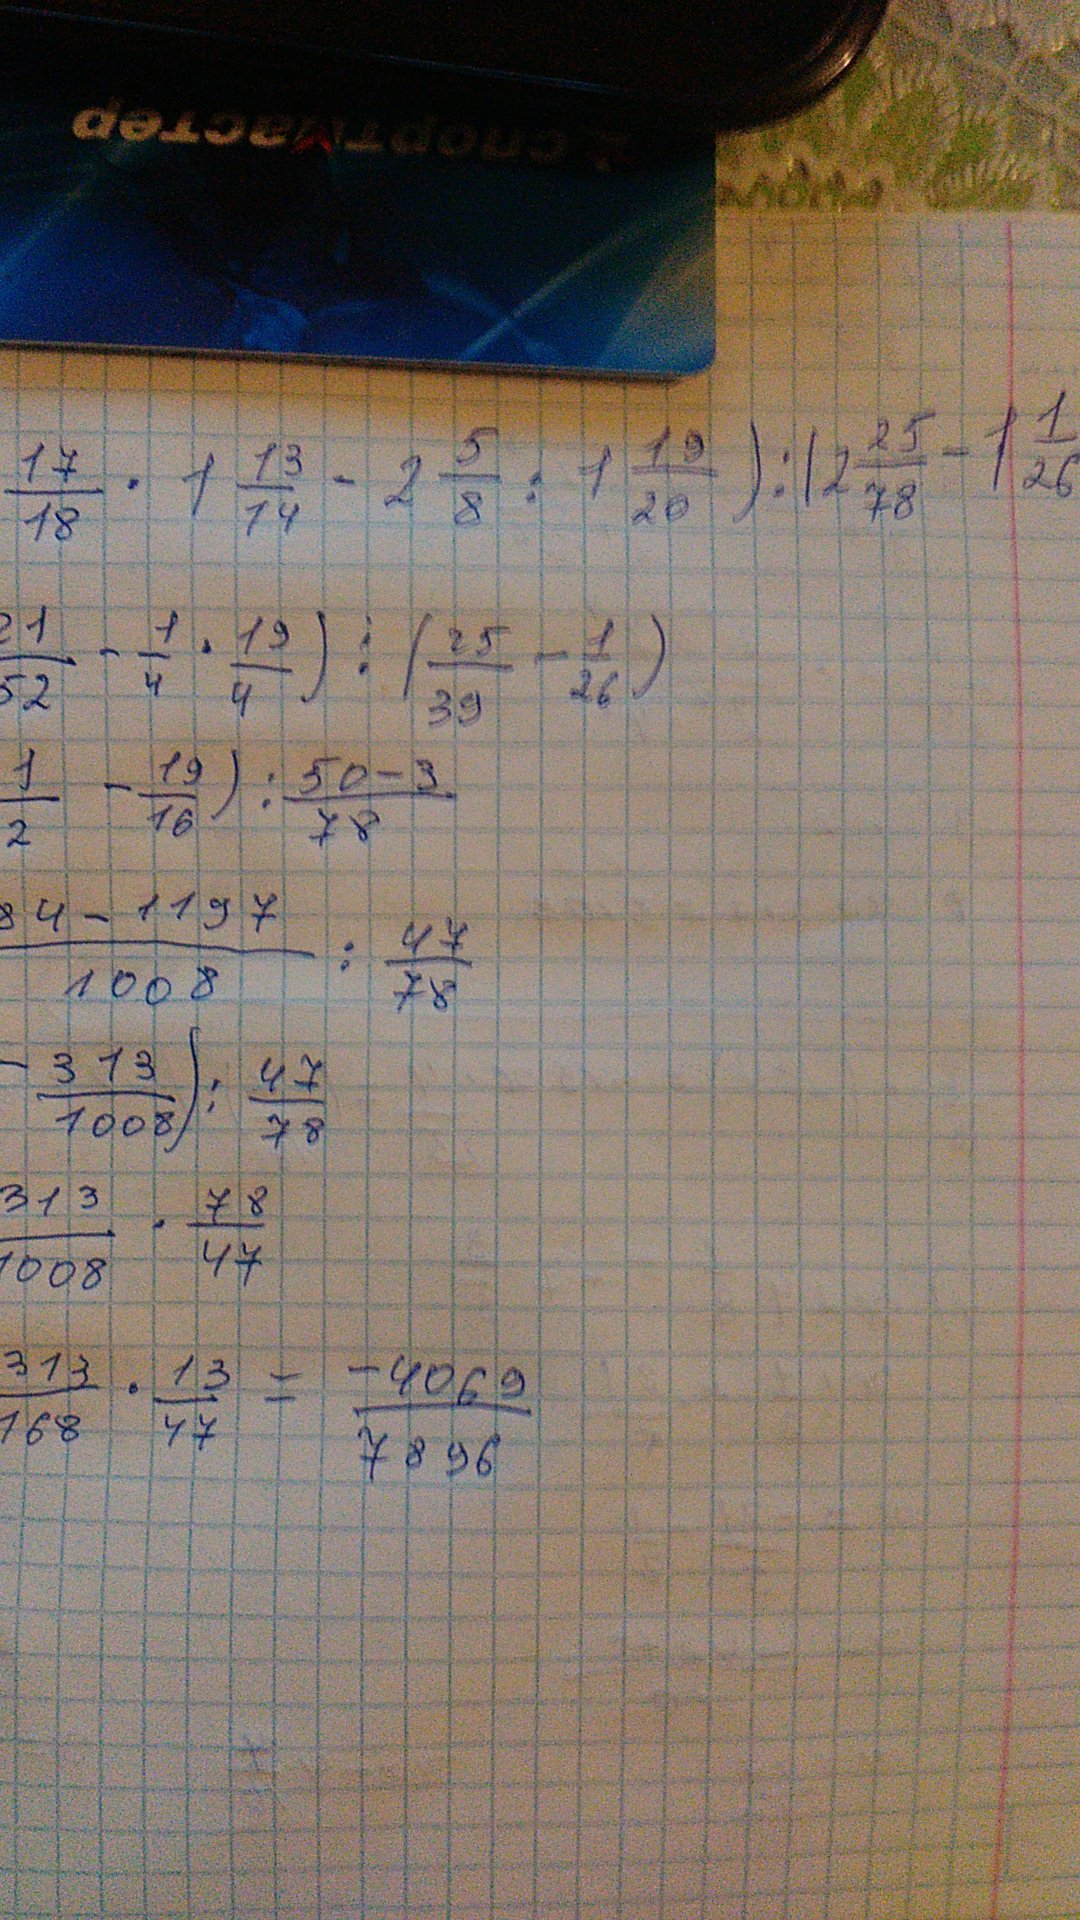 спортмастер
17/18 · 1 13/14 - 2 5/8 : 1 19/20 ) : (2 25/78 - 1 1/26
21/52 - 1/4 · 19/4 ) : ( 25/39 - 1/26 )
1/2 - 19/16 ) : 50-3/78
84 - 1197/1008 : 47/78
- 313/1008 ) : 47/78
313/1008 · 78/47
313/168 · 13/47 = -4069/7896